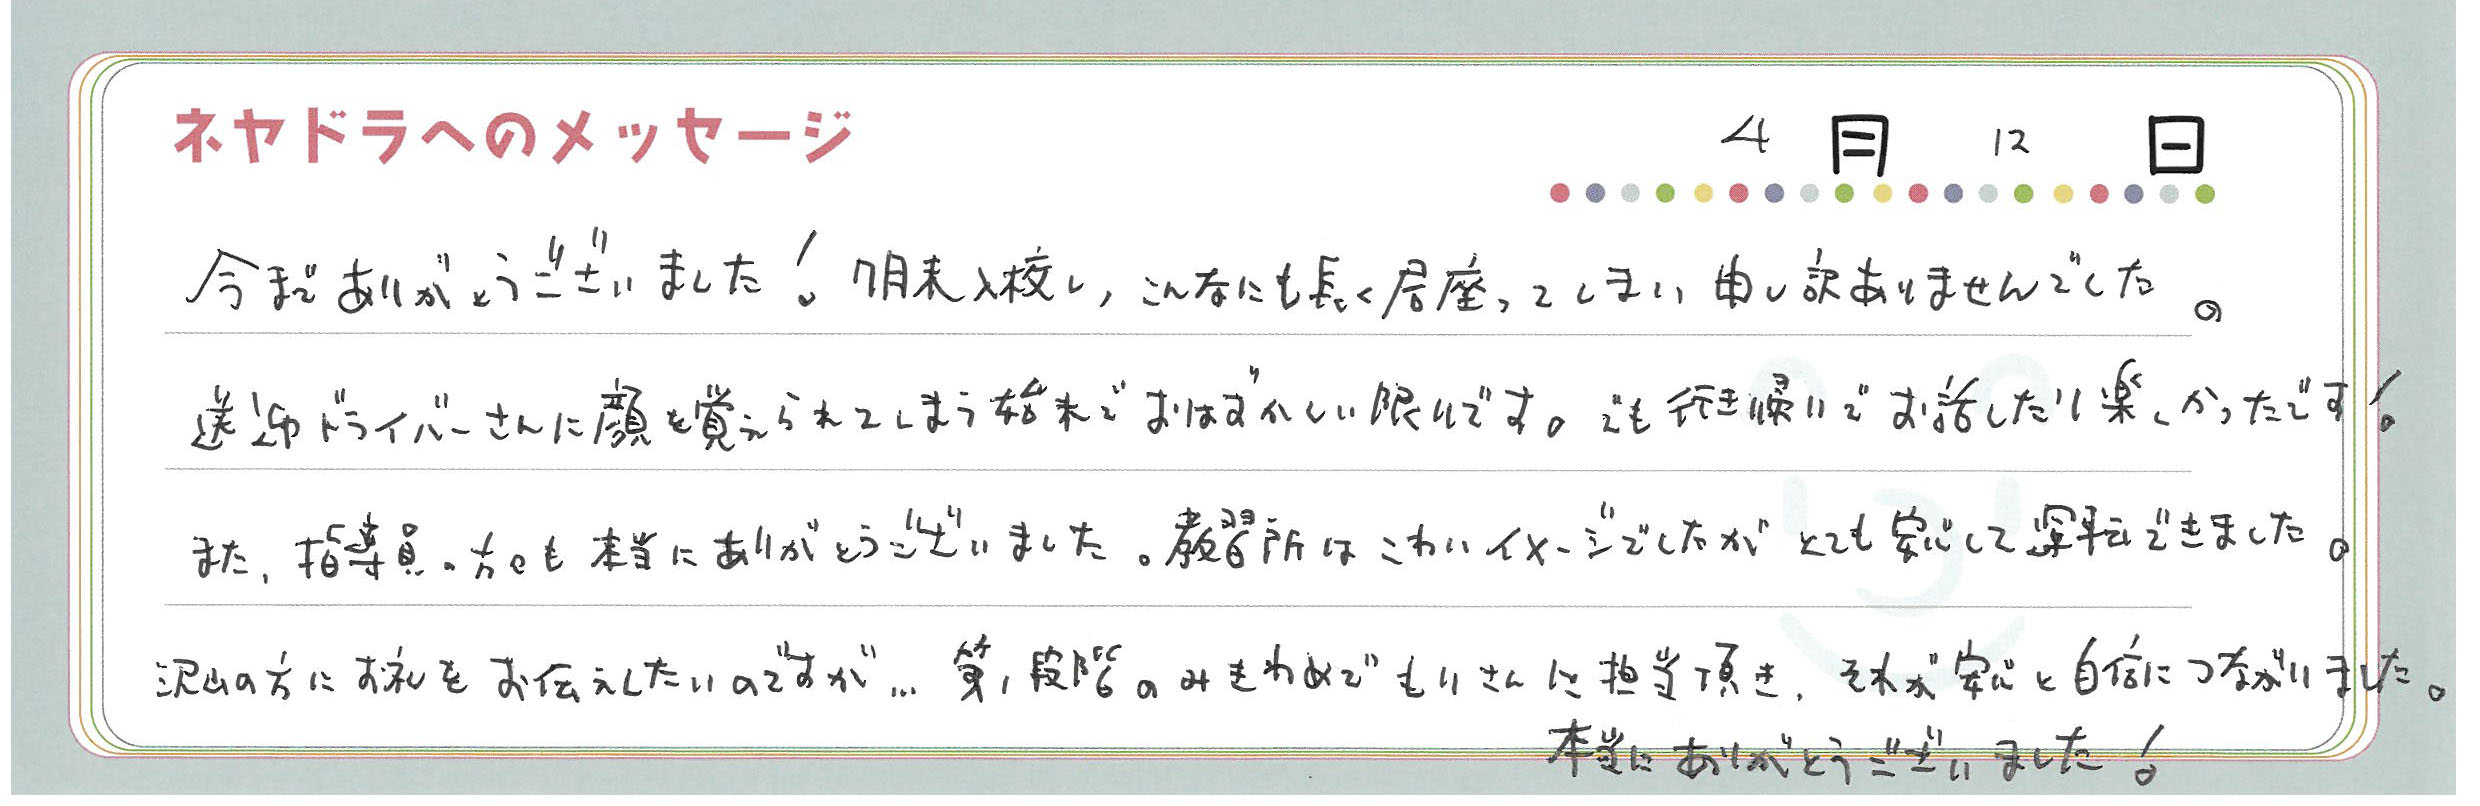 ネヤドラへのメッセージ
4月12日
今までありがとうございました！7月末入校し，こんなにも長く居座ってしまい申し訳ありませんでした。
送迎ドライバーさんに顔を覚えられてしまう始末でおはずかしい限りです。でも行き帰りでお話したり楽しかったです！
また、指導員の方々も本当にありがとうございました。教習所はこわいイメージでしたがとても安心して運転できました。
沢山の方にお礼をお伝えしたいのですが…第1段階のみきわめでもりさんに担当頂き、それが安心と自信につながりました。
本当にありがとうございました！